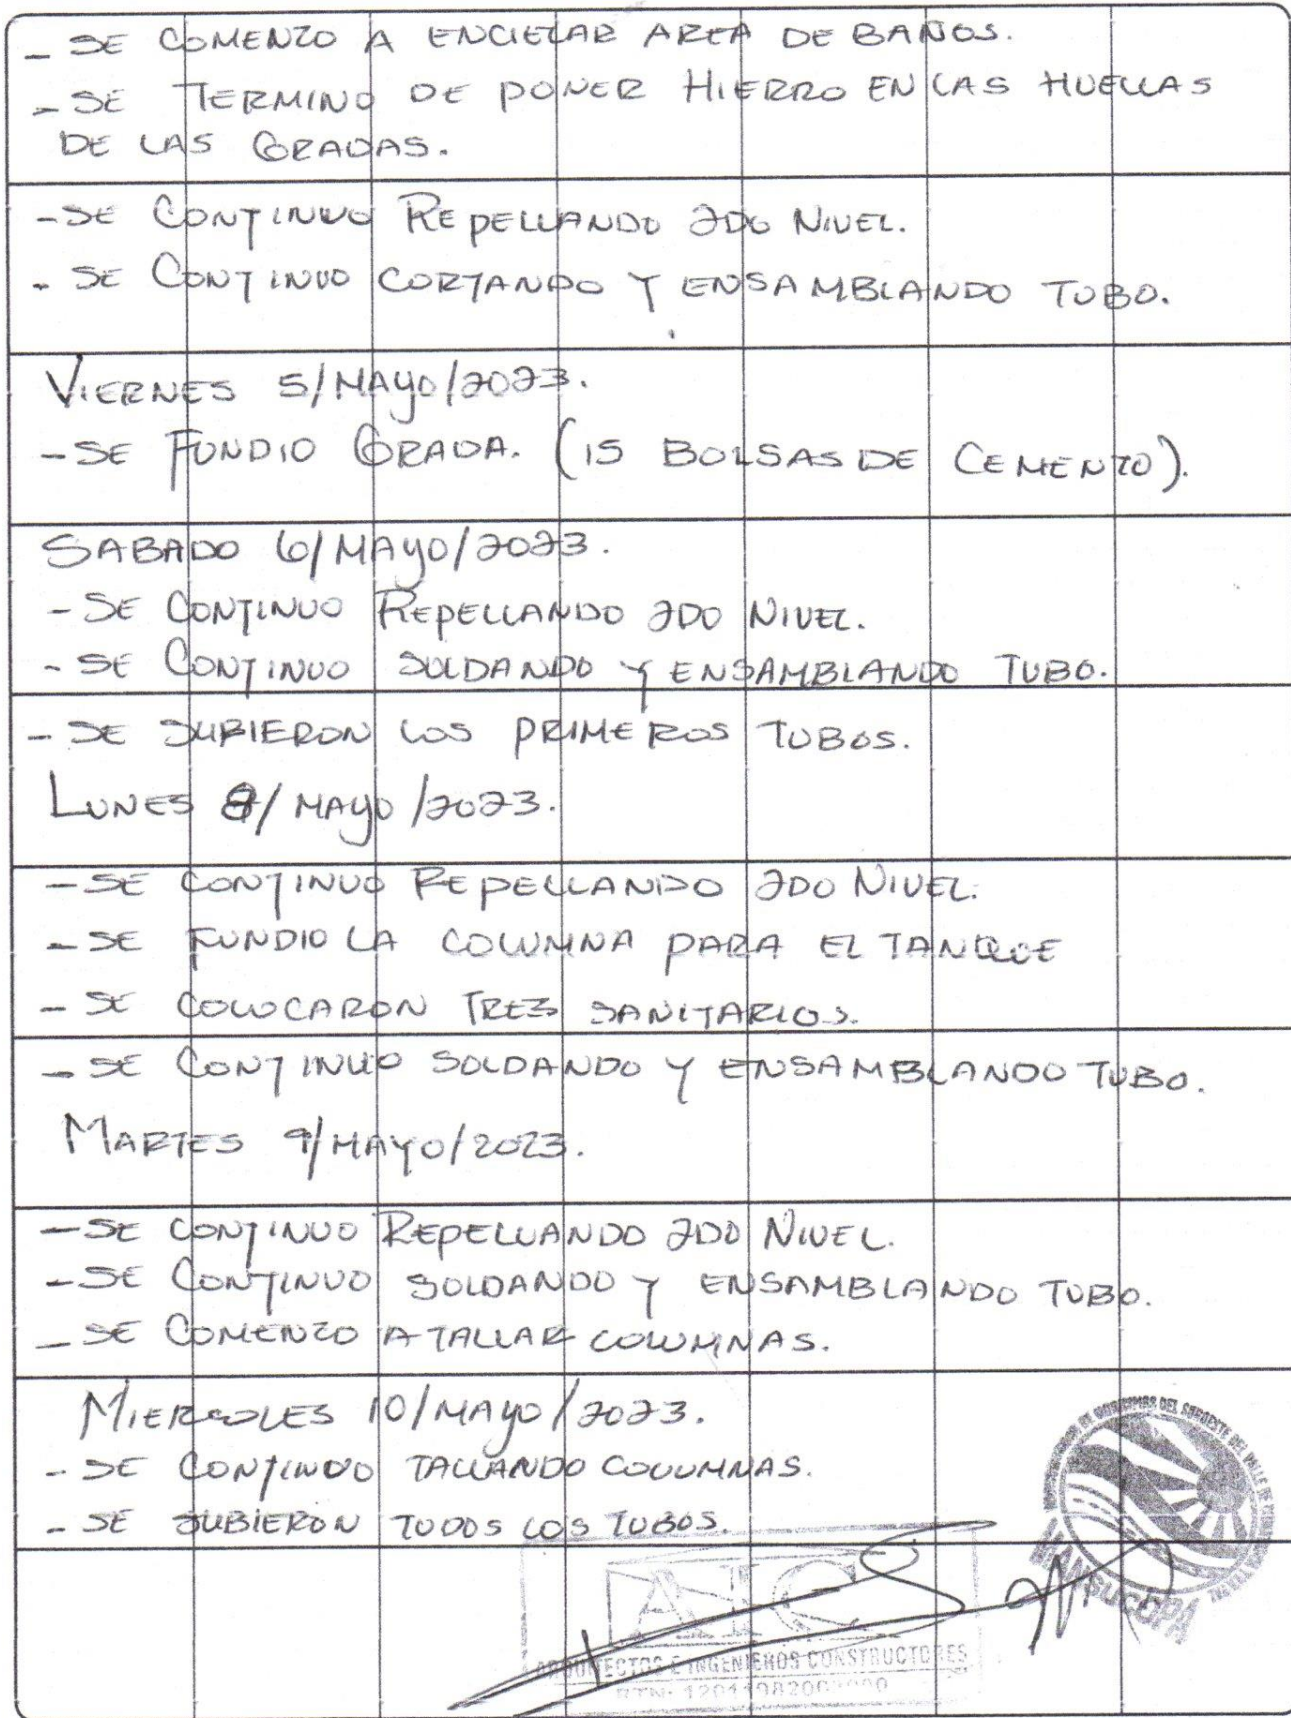 - SE COMENZO A ENCIELAR AREA DE BAÑOS.
- SE TERMINO DE PONER HIERRO EN LAS HUELLAS
DE LAS GRADAS.
- SE CONTINUO REPELLANDO 2DO NIVEL.
- SE CONTINUO CORTANDO Y ENSAMBLANDO TUBO.
VIERNES 5/MAYO/2023.
- SE FUNDIO GRADA. (15 BOLSAS DE CEMENTO).
SABADO 6/MAYO/2023.
- SE CONTINUO REPELLANDO 2DO NIVEL.
- SE CONTINUO SOLDANDO Y ENSAMBLANDO TUBO.
- SE SUBIERON LOS PRIMEROS TUBOS.
LUNES 8/MAYO/2023.
- SE CONTINUO REPELLANDO 2DO NIVEL.
- SE FUNDIO LA COLUMNA PARA EL TANQUE
- SE COLOCARON TRES SANITARIOS.
- SE CONTINUO SOLDANDO Y ENSAMBLANDO TUBO.
MARTES 9/MAYO/2023.
- SE CONTINUO REPELLANDO 2DO NIVEL.
- SE CONTINUO SOLDANDO Y ENSAMBLANDO TUBO.
- SE COMENZO A TALLAR COLUMNAS.
MIERCOLES 10/MAYO/2023.
- SE CONTINUO TALLANDO COLUMNAS.
- SE SUBIERON TODOS LOS TUBOS.
MAMSUCOPA
AIC
ARQUITECTOS E INGENIEROS CONSTRUCTORES